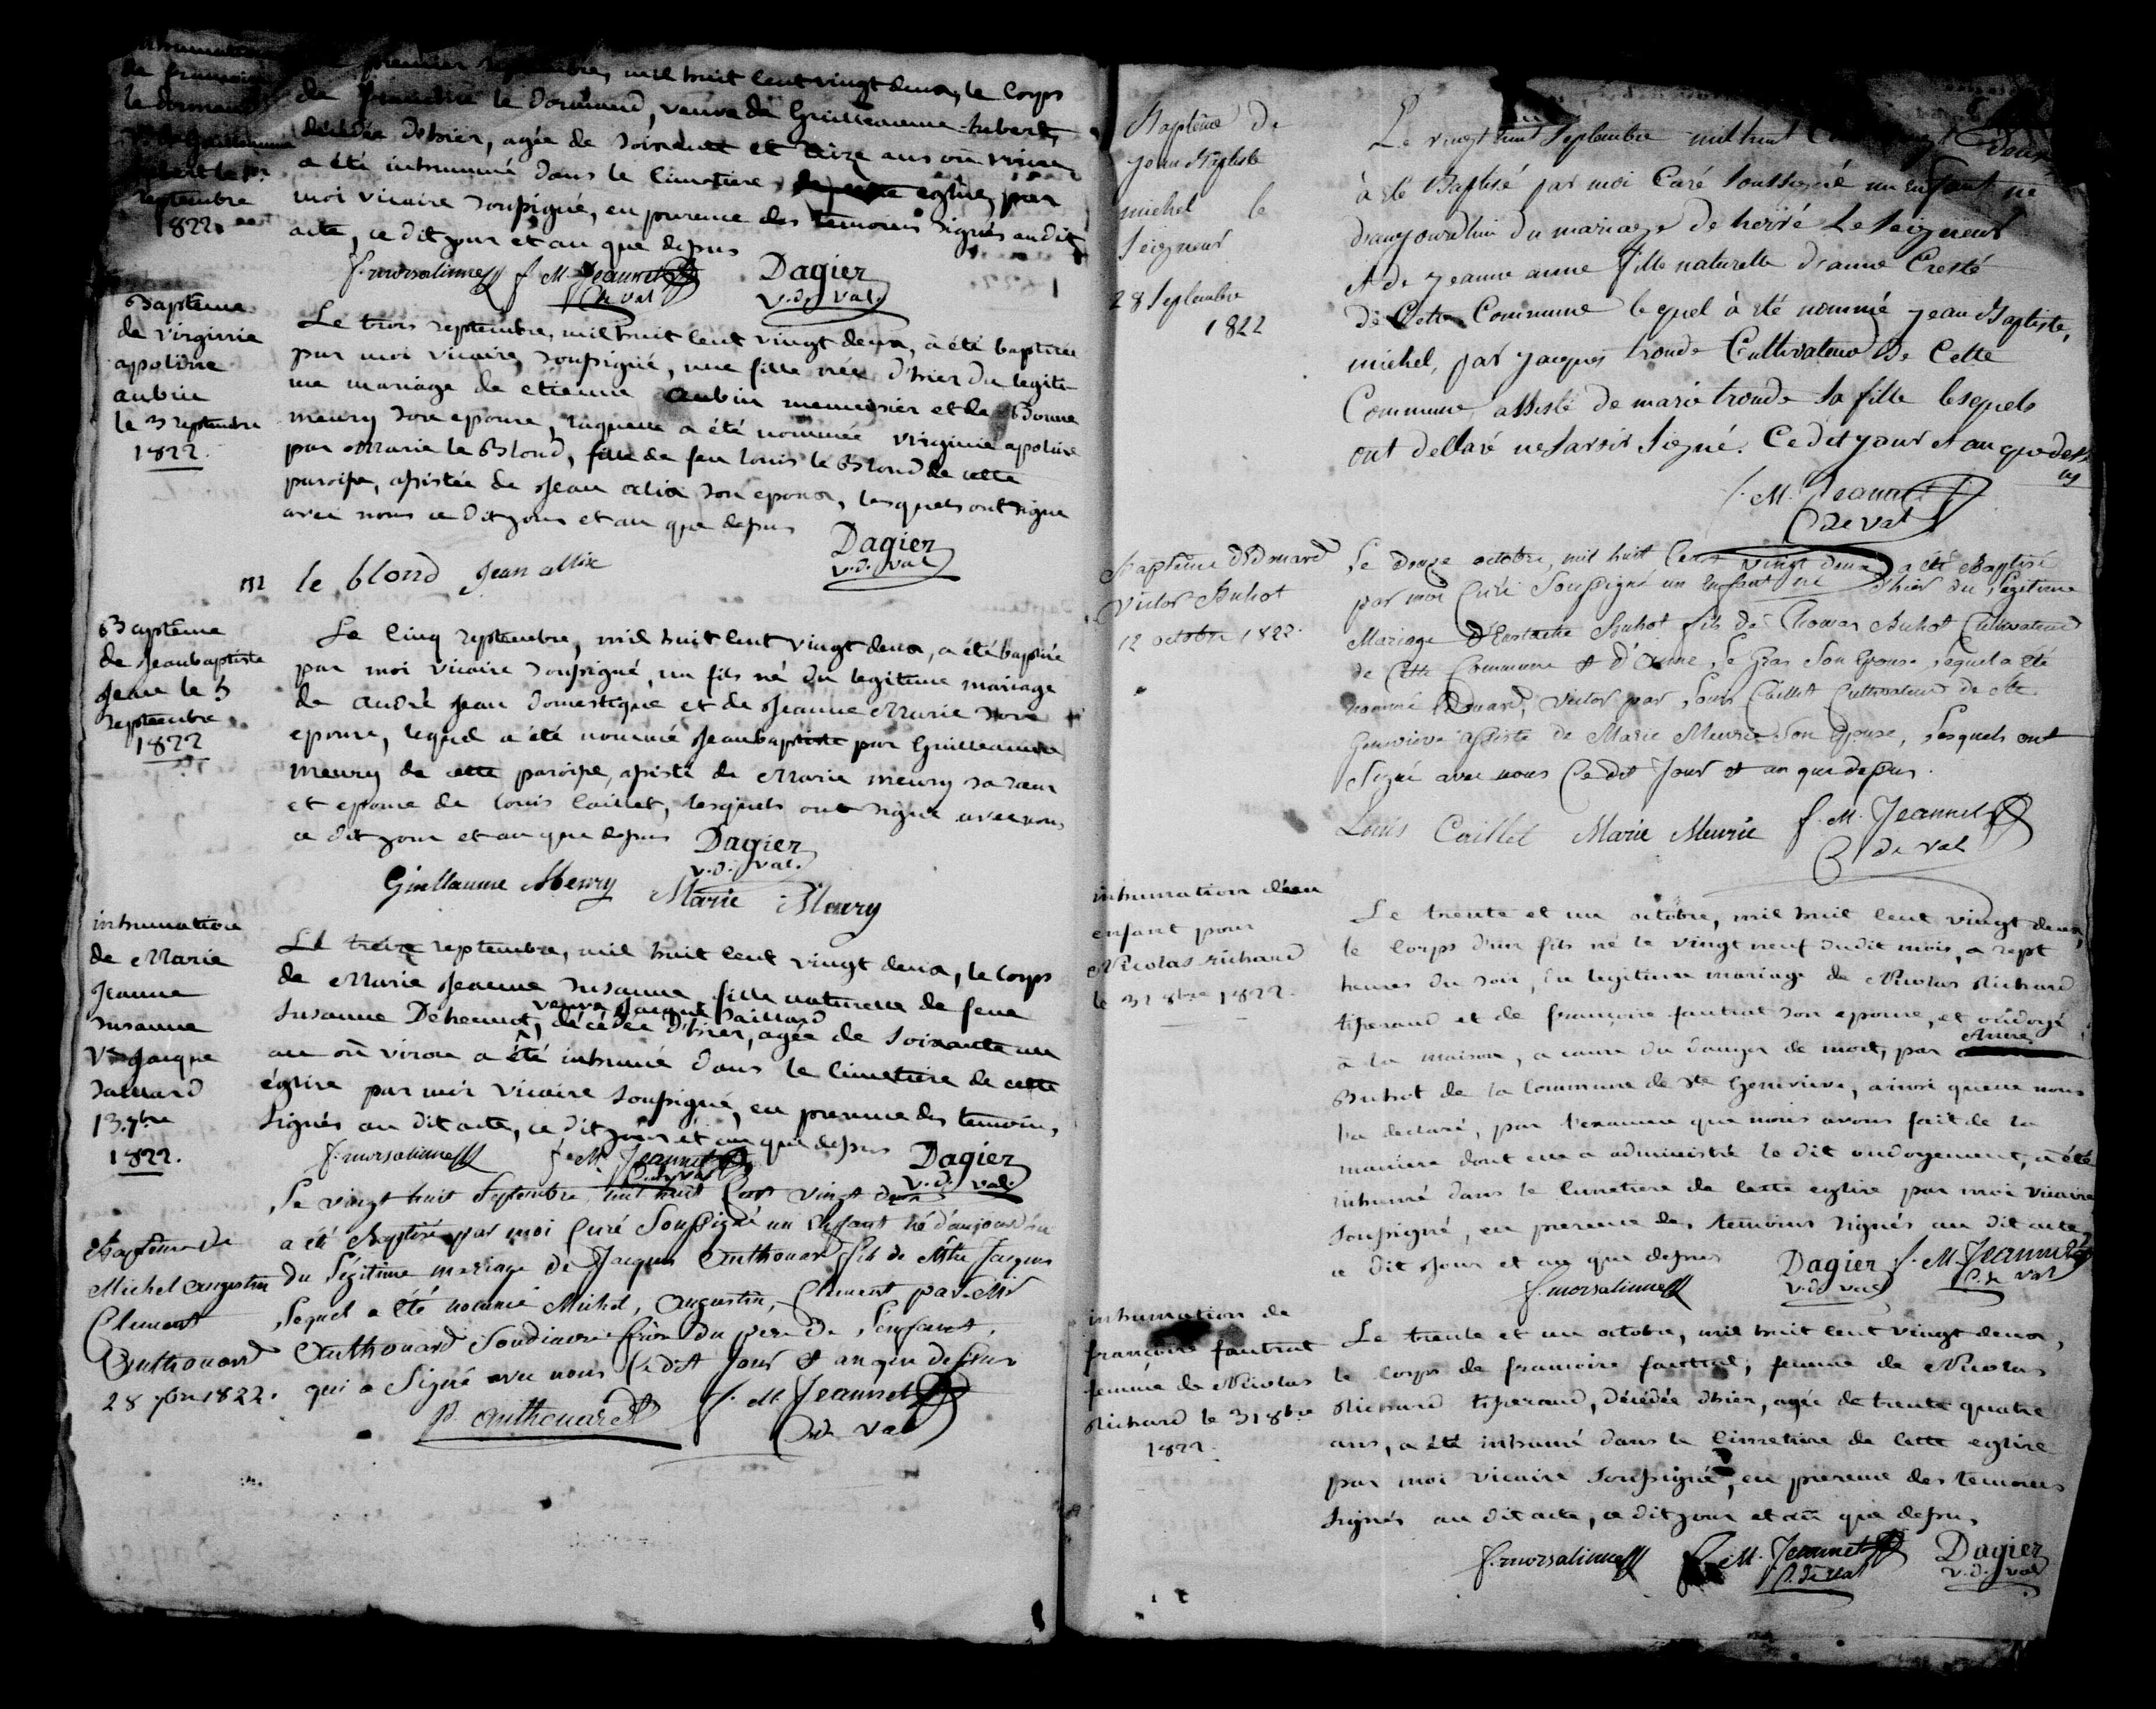 inhumation
de françoise
le dormand
Ve de Guillaume
hubert le 1er
septembre
1822.
Le premier septembre, mil huit cent vingt deux, le corps
de françoise le dormand, veuve de Guilleaume hubert,
décédée d'hier, agée de soixante et treize ans où viron
a été inhummé dans le cimetiere, eglise, par
moi vicaire soussigné, en presence des temoins signés au dit
acte, ce dit jour et an que dessus
f. morsalinne f. M. Jeannet Dagier
C. de Val v. d. val.
Baptême
de virginie
apoline
aubin
le 3 septembre
1822.
Le trois septembre, mil huit cent vingt deux, a été baptisée
par moi vicaire soussigné, une fille née d'hier du legiti-
me mariage de etienne aubin menuisier et de Bonne
meury son epouse, laquelle a été nommée virginie apoline
par Marie le Blond, fille de feu louis le Blond de cette
paroisse, assistée de Jean alix son epoux, lesquels ont signe
avec nous ce dit jour et an que dessus
Dagier
v. d. val
m le blond Jean allix
Baptême
de Jeanbaptiste
Jean le 5
septembre
1822
Le cinq septembre, mil huit cent vingt deux, a été baptisé
par moi vicaire soussigné, un fils né du legitime mariage
de André Jean domestique et de Jeanne Marie son
epouse, lequel a été nommé Jeanbaptiste par Guilleaume
meury de cette paroisse, assisté de Marie meury sa sœur
et epouse de louis Caillet, lesquels ont signé avec nous
ce dit jour et an que dessus Dagier
v. d. val.
Guillaume Meury Marie Meury
inhumation
de Marie
Jeanne
susanne
Ve Jacque
Saillard
13 7bre
1822.
Le treize septembre, mil huit cent vingt deux, le corps
de Marie Jeanne susanne, fille naturelle de feue
veuve Jacque Saillard
susanne Dehennot, décédée d'hier, agée de soixante un
an où viron a été inhumé dans le cimetiere de cette
église par moi vicaire soussigné, en presence des temoins
signés au dit acte, ce dit jour et an que dessus
f. morsalinne f. M. Jeannet Dagier
C. de Val v. d. val.
Baptême de
Michel augustin
Clement
Anthouard
28 7bre 1822.
Le vingt huit Septembre mil huit Cent vingt deux
a été Baptisé par moi Curé Soussigné un Enfant né d'aujourd'hui
du Légitime mariage de Jacques Anthouard fils de Jacques
Lequel a été nommé Michel, augustin, Clement par
Anthouard Soudiacre frère du père de L'enfant,
qui a Signé avec nous Ce dit Jour et an que dessus
P. anthouard f. M. Jeannet
C. de Val
Baptême de
Jean Bptiste
michel le
Seigneur
28 Septembre
1822
Le vingt huit Septembre mil huit Cent vingt deux
à été Baptisé par moi Curé Soussigné un Enfant né
d'aujourdhui du mariage de hervé Le Seigneur
et de Jeanne anne fille naturelle d'anne Cresté
de Cette Commune lequel à été nommé Jean Baptiste,
michel, par Jacques troude Cultivateur de Cette
Commune assisté de marie troude sa fille lesquels
ont dellaré ne Savoir Signé. Ce dit jour et an que dess
us
f. M. Jeannet
C de Val
Baptême d'Edouard
Victor Buhot
12 octobre 1822.
Le Douze octobre, mil huit Cent vingt deux a été Baptisé
par moi Curé Soussigné un Enfant né d'hier du Légitime
Mariage d'Eustache Buhot fils de Thomas Buhot Cultivateur
de Cette Commune et d'Anne Le Gras Son Epouse, Lequel a été
nommé Edouard, Victor par Louis Caillet Cultivateur de Ste
Genevieve assisté de Marie Meurie Son Epouse, Lesquels ont
Signé avec nous Ce dit Jour et an que dessus.
Louis Caillet Marie Meurie f. M. Jeannet
C de Val
inhumation d'un
enfant pour
Nicolas richard
le 31 8bre 1822.
Le trente et un octobre, mil huit cent vingt deux,
le corps d'un fils né le vingt neuf dudit mois, a sept
heures du soir, du legitime mariage de Nicolas Richard
tisserand et de françoise fautrat son epouse, et ondoyé
à la maison, a cause du danger de mort, par Anne
Buhot de la commune de Ste Genevieve, ainsi quelle nous
l'a declaré, par l'examen que nous avons fait de la
maniere dont elle a administré le dit ondoyement, a été
inhumé dans le cimetiere de cette eglise par moi vicaire
soussigné, en presence des temoins signés au dit acte,
ce dit jour et an que dessus Dagier f. M. Jeannet
f. morsalinne v. d. val C. de Val
inhumation de
françoise fautrat
femme de Nicolas
Richard le 31 8bre
1822.
Le trente et un octobre, mil huit cent vingt deux,
le corps de francoise fautrat, femme de Nicolas
Richard tisserand, décédée d'hier, agée de trente quatre
ans, a été inhumé dans le cimetiere de cette eglise
par moi vicaire soussigné, en presence des temoins
signés au dit acte, ce dit jour et an que dessus
f. morsalinne f. M. Jeannet Dagier
C. de Val v. d. val